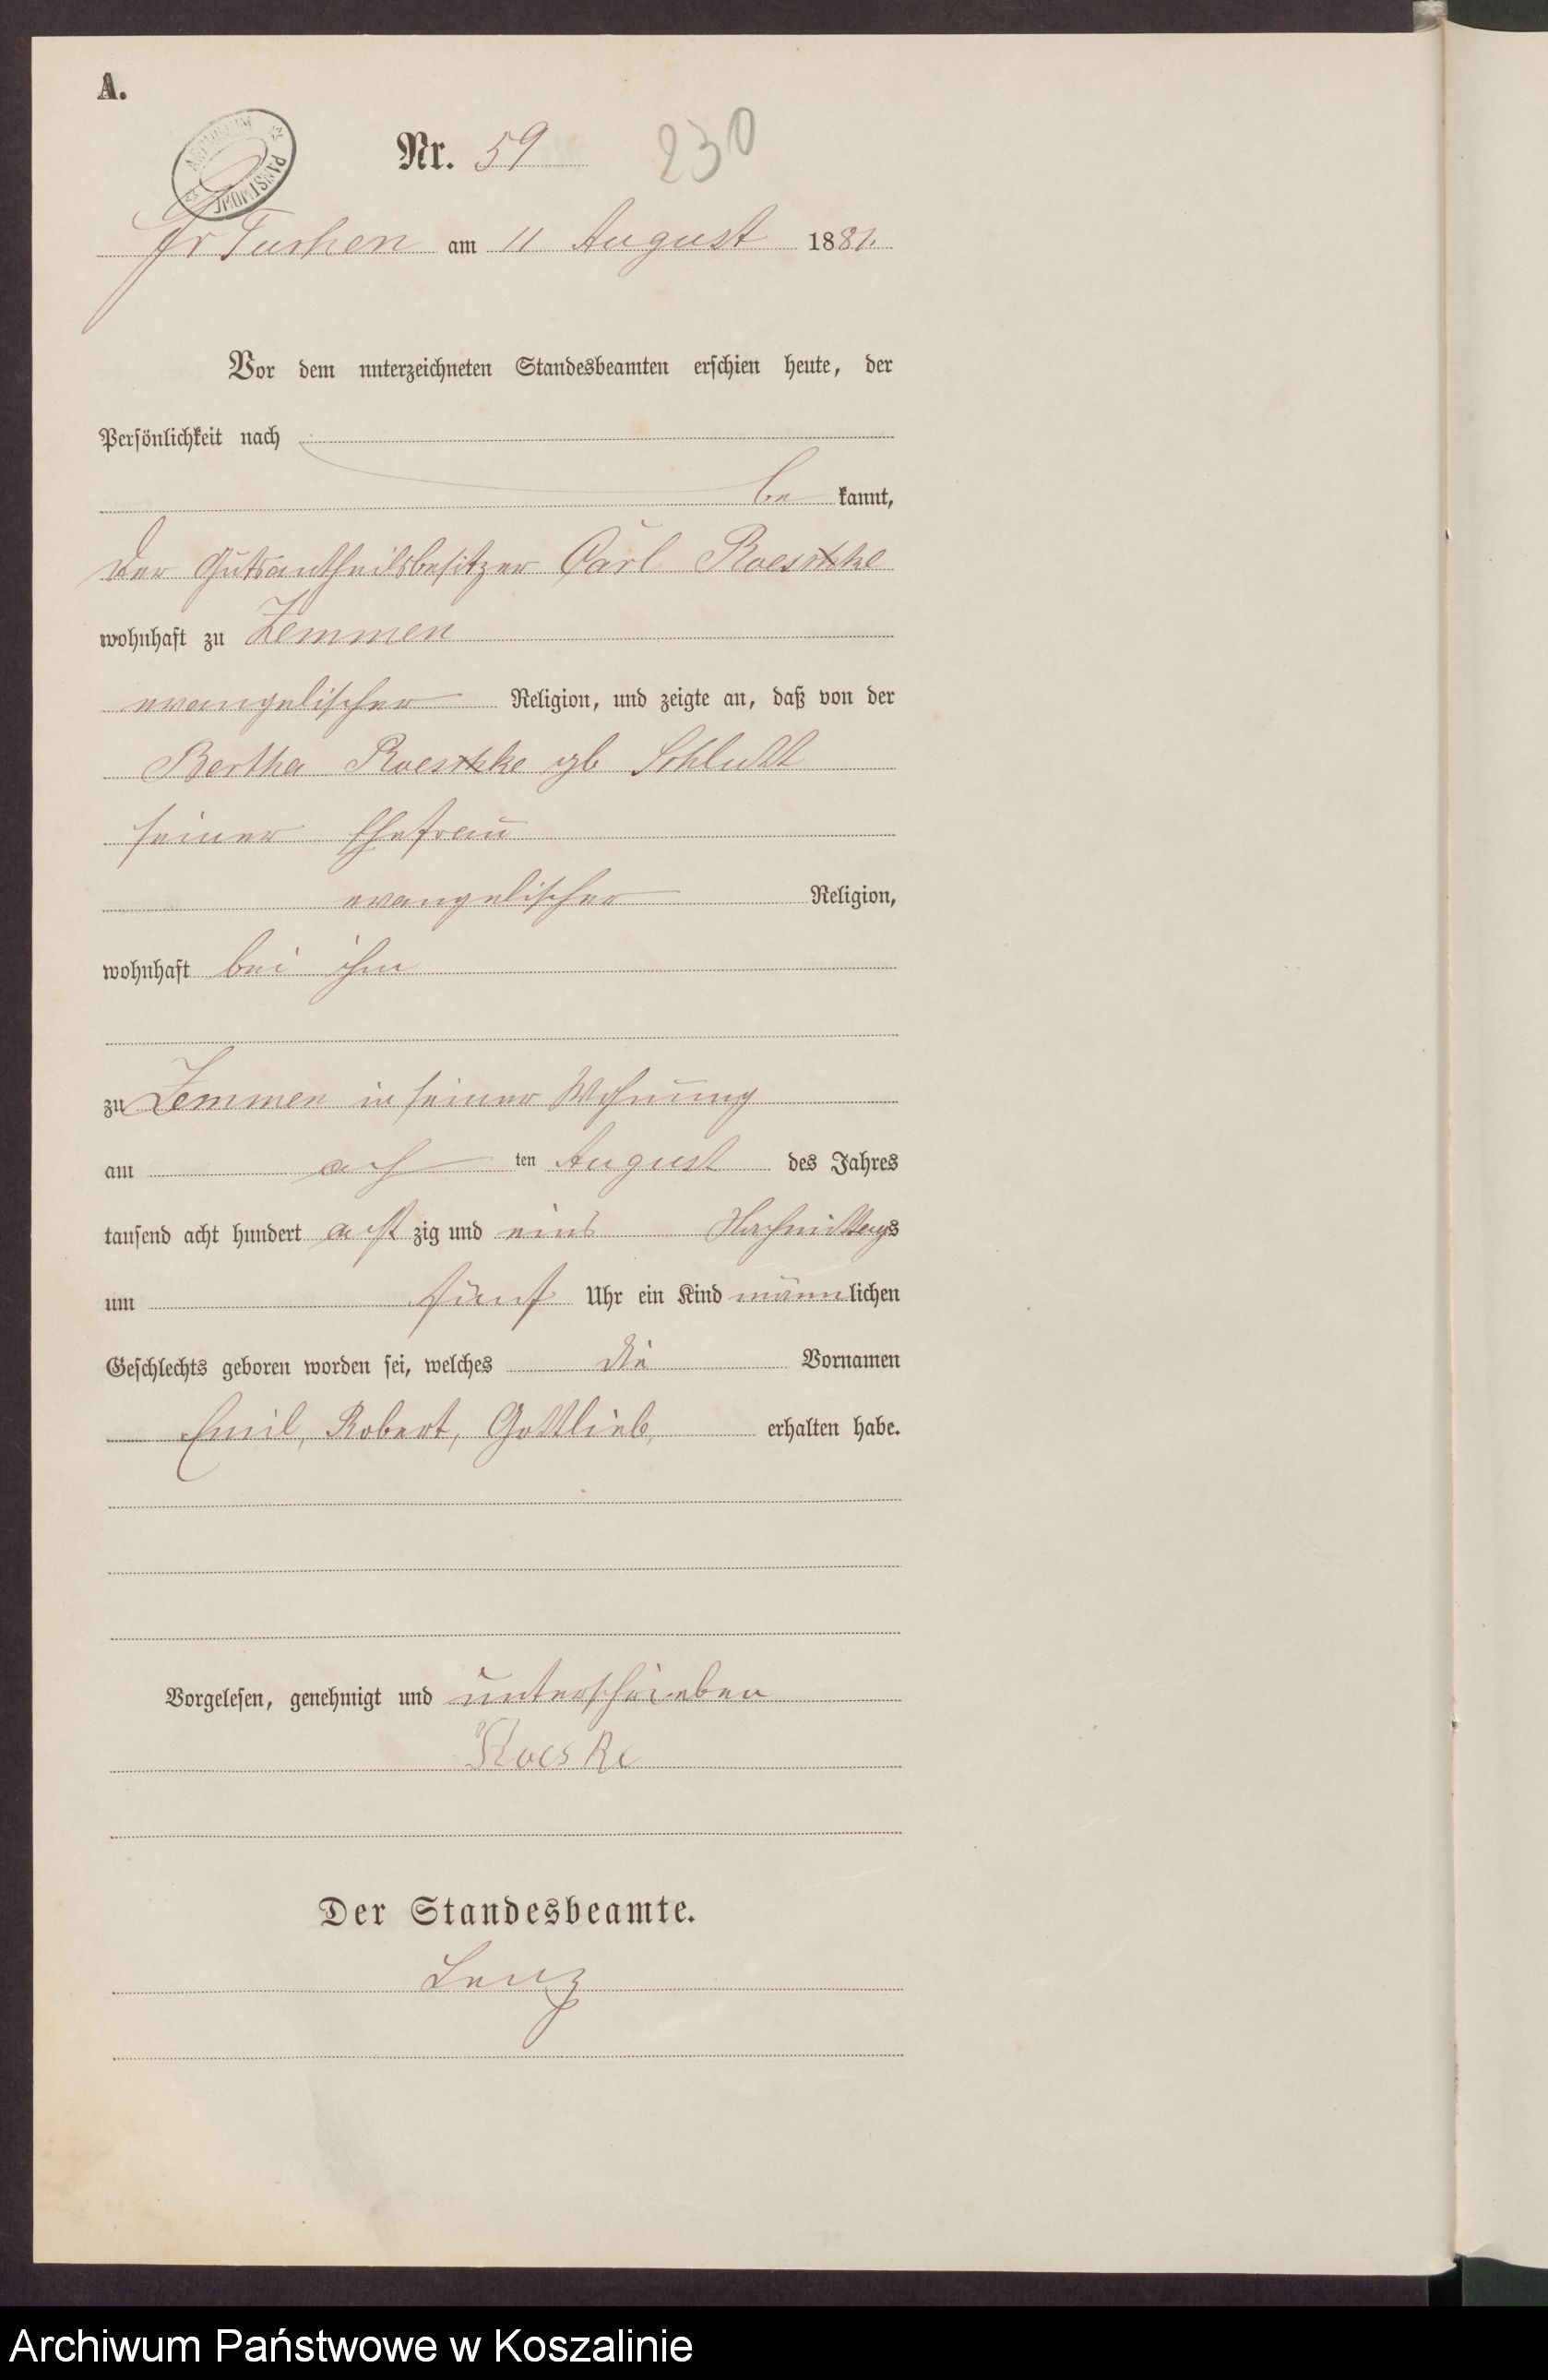 A.
Nr. 59 230
Gr Tuchen am 11 August 1881.
Vor dem nnterzeichneten Standesbeamten erschien heute, der
Persönlichkeit nach
be kannt,
der Gutsantheilsbesitzer Carl
wohnhaft zu Zemmen
evangelischer Religion, und zeigte an, daß von der
Bertha gb
seiner Ehefrau
evangelischer Religion,
wohnhaft bei ihm
zu Zemmen in seiner Wohnung
am ach ten August des Jahres
tausend acht hundert acht zig und eins Nachmittags
um fünf Uhr ein Kind männlichen
Geschlechts geboren worden sei, welches die Vornamen
Emil, Robert, Gottlieb, erhalten habe.
Vorgelesen, genehmigt und unterschrieben
Roeske
Der Standesbeamte.
Lenz
Archiwum Państwowe w Koszalinie